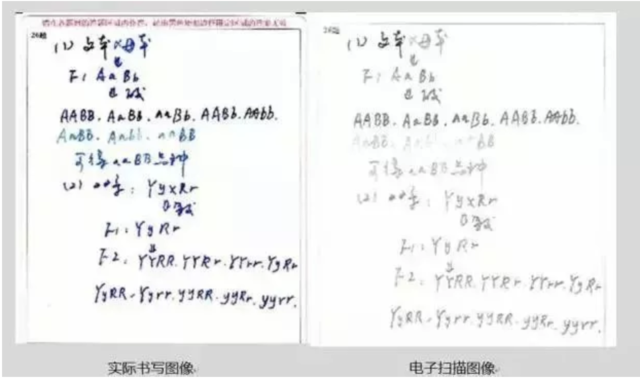 请在各题目的答题区域内作答，超出黑色矩形边框限定区域的答案无效
(1) 父本×母本
F1 AaBb
AABB. AaBB. aaBb. AABb. AAbb.
AaBB. Aabb. aaBB
可得aaBB品种
(2) YyxRr
F1: YyRr
F2: YYRR. YYRr. YYrr. YyRr
YyRR. Yyrr. yyRR. yyRr. yyrr.
实际书写图像
(1) 父本×母本
F1 AaBb
AABB. AaBB. aaBb. AABb. AAbb.
可得aaBB品种
(2) YyxRr
F1: YyRr
F2: YYRR. YYRr. YYrr. YyRr
YyRR. Yyrr. yyRR. yyRr. yyrr.
电子扫描图像